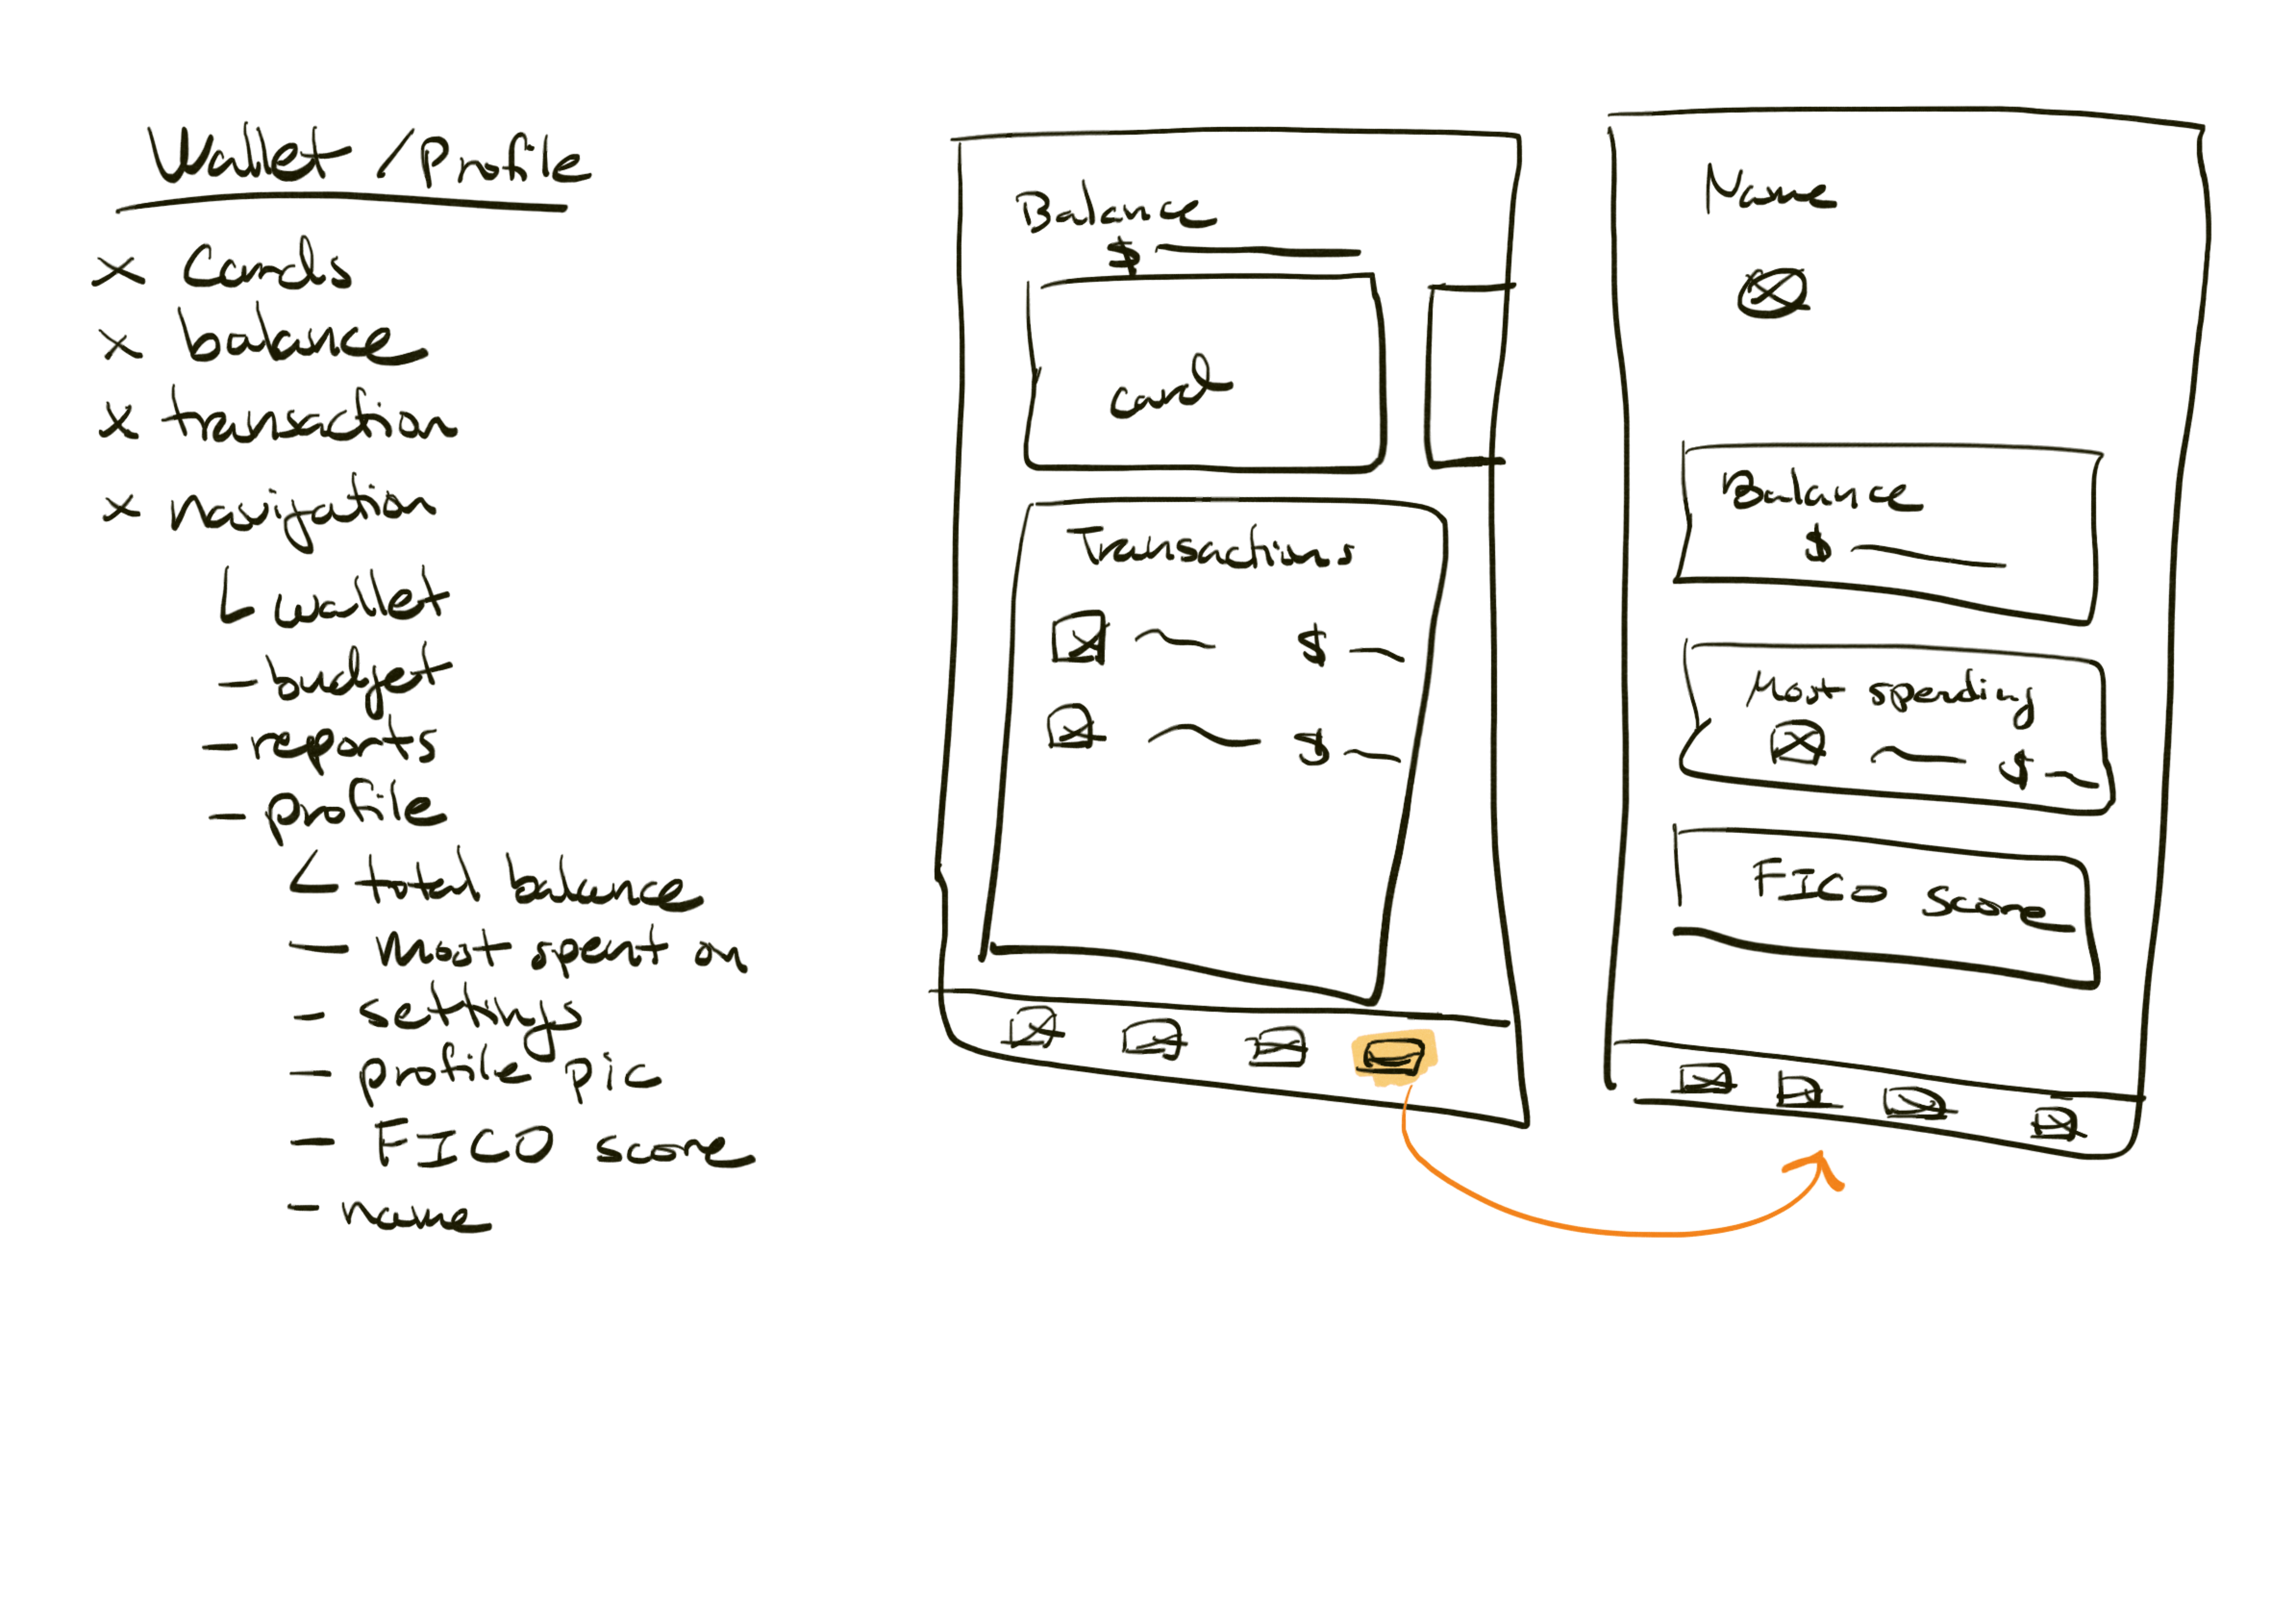 Wallet / Profile
x Cards
x balance
x transaction
x navigation
wallet
- budget
- reports
- profile
total balance
- most spent on
- settings
- profile pic
- FICO score
- name
Balance
$
card
Transactions
$
$
Name
Balance
$
Most spending
$
FICO score